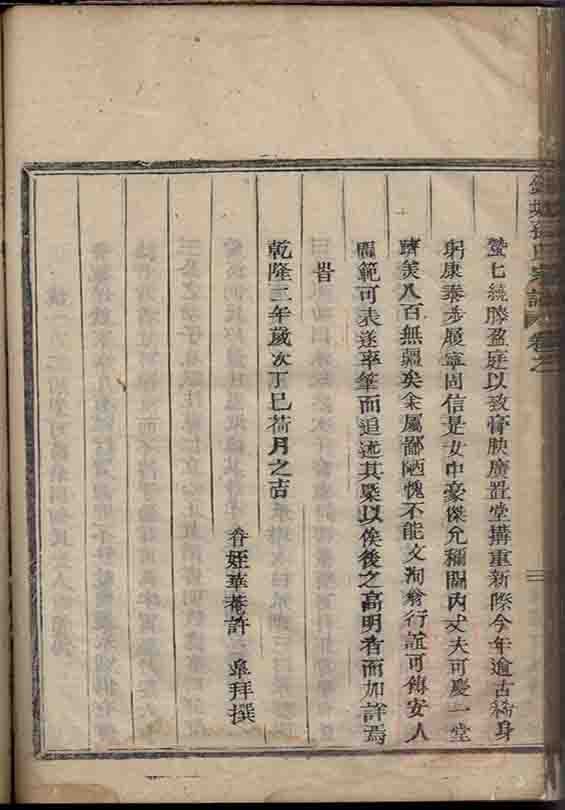 氏家譜 卷之
蟄七繞膝盈庭以致膏腴廣置堂搆重新際今年逾古稀身
躬康泰步履寧固信是女中豪傑允稱閫內丈夫可慶一堂
躋美八百無疆矣余屬鄙陋愧不能文洵翁行誼可傳安人
閫範可表遂率筆而追述其槩以俟後之高明者而加詳焉
旹
乾隆二年歲次丁巳荷月之吉
眷姪華菴許 拜撰